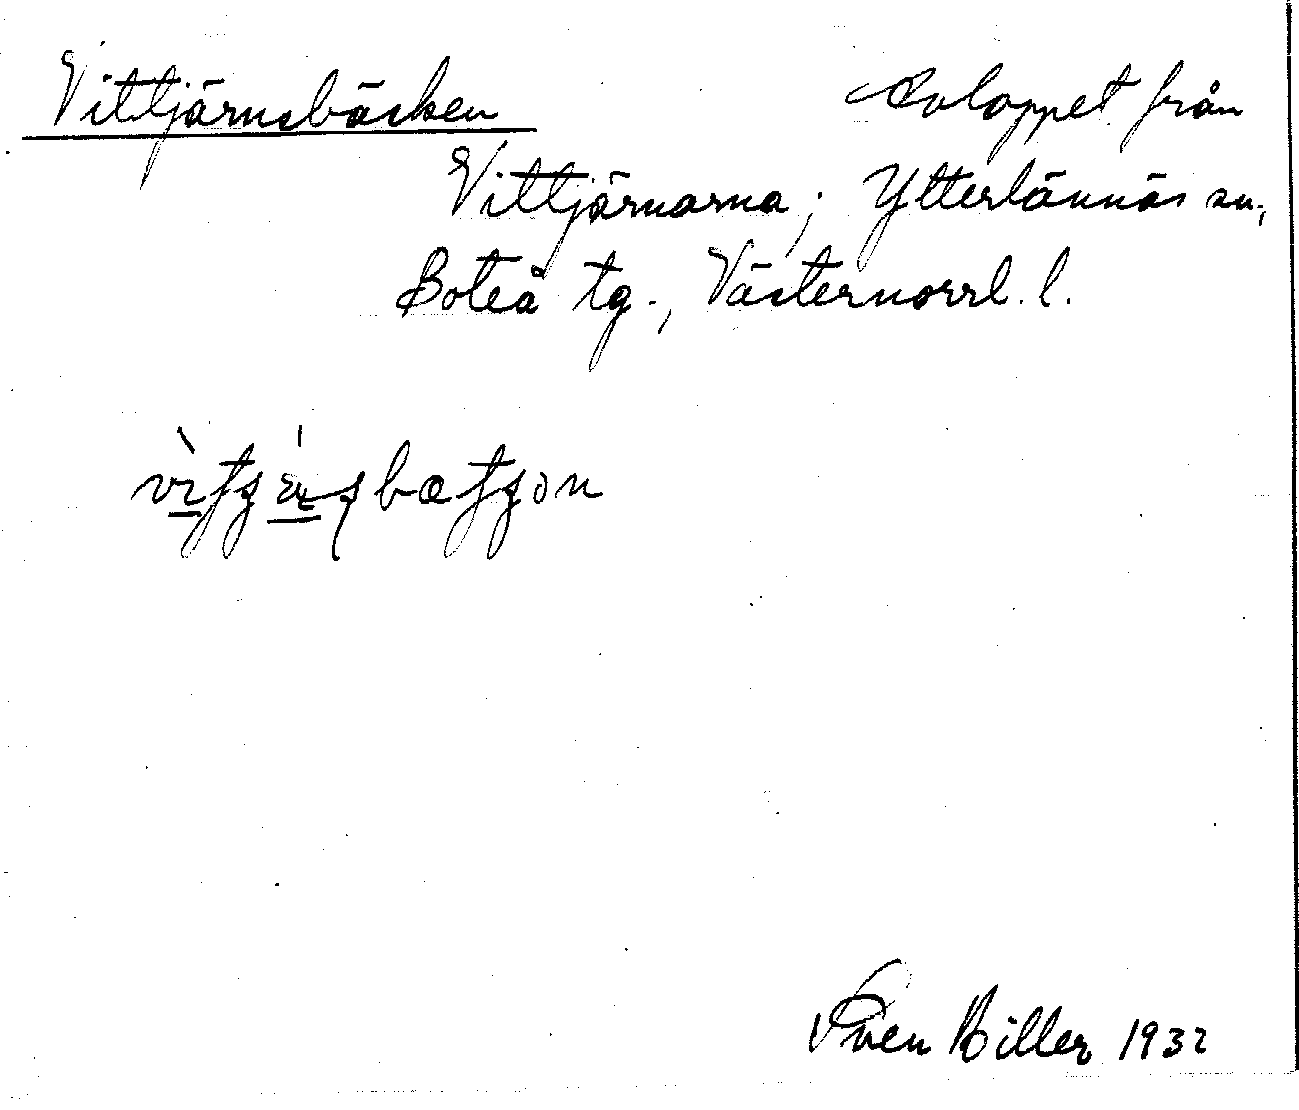 Vittjärnsbäcken Avloppet från
Vittjärnarna; Ytterlännäs sn.,
Boteå tg., Västernorrl. l.
Sven Biller 1932